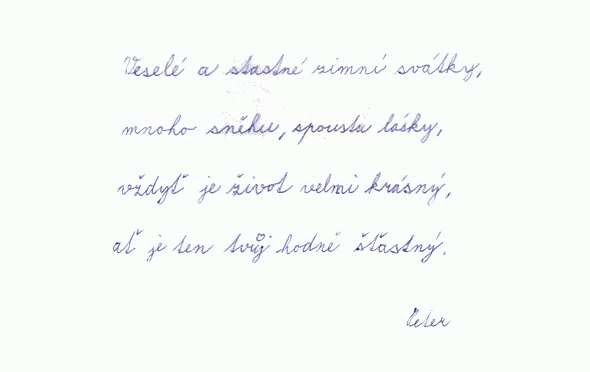 Veselé a stastné zimní svátky,
mnoho sněhu, spousta lásky,
vždyť je život velmi krásný,
ať je ten tvůj hodně šťastný.
Peter